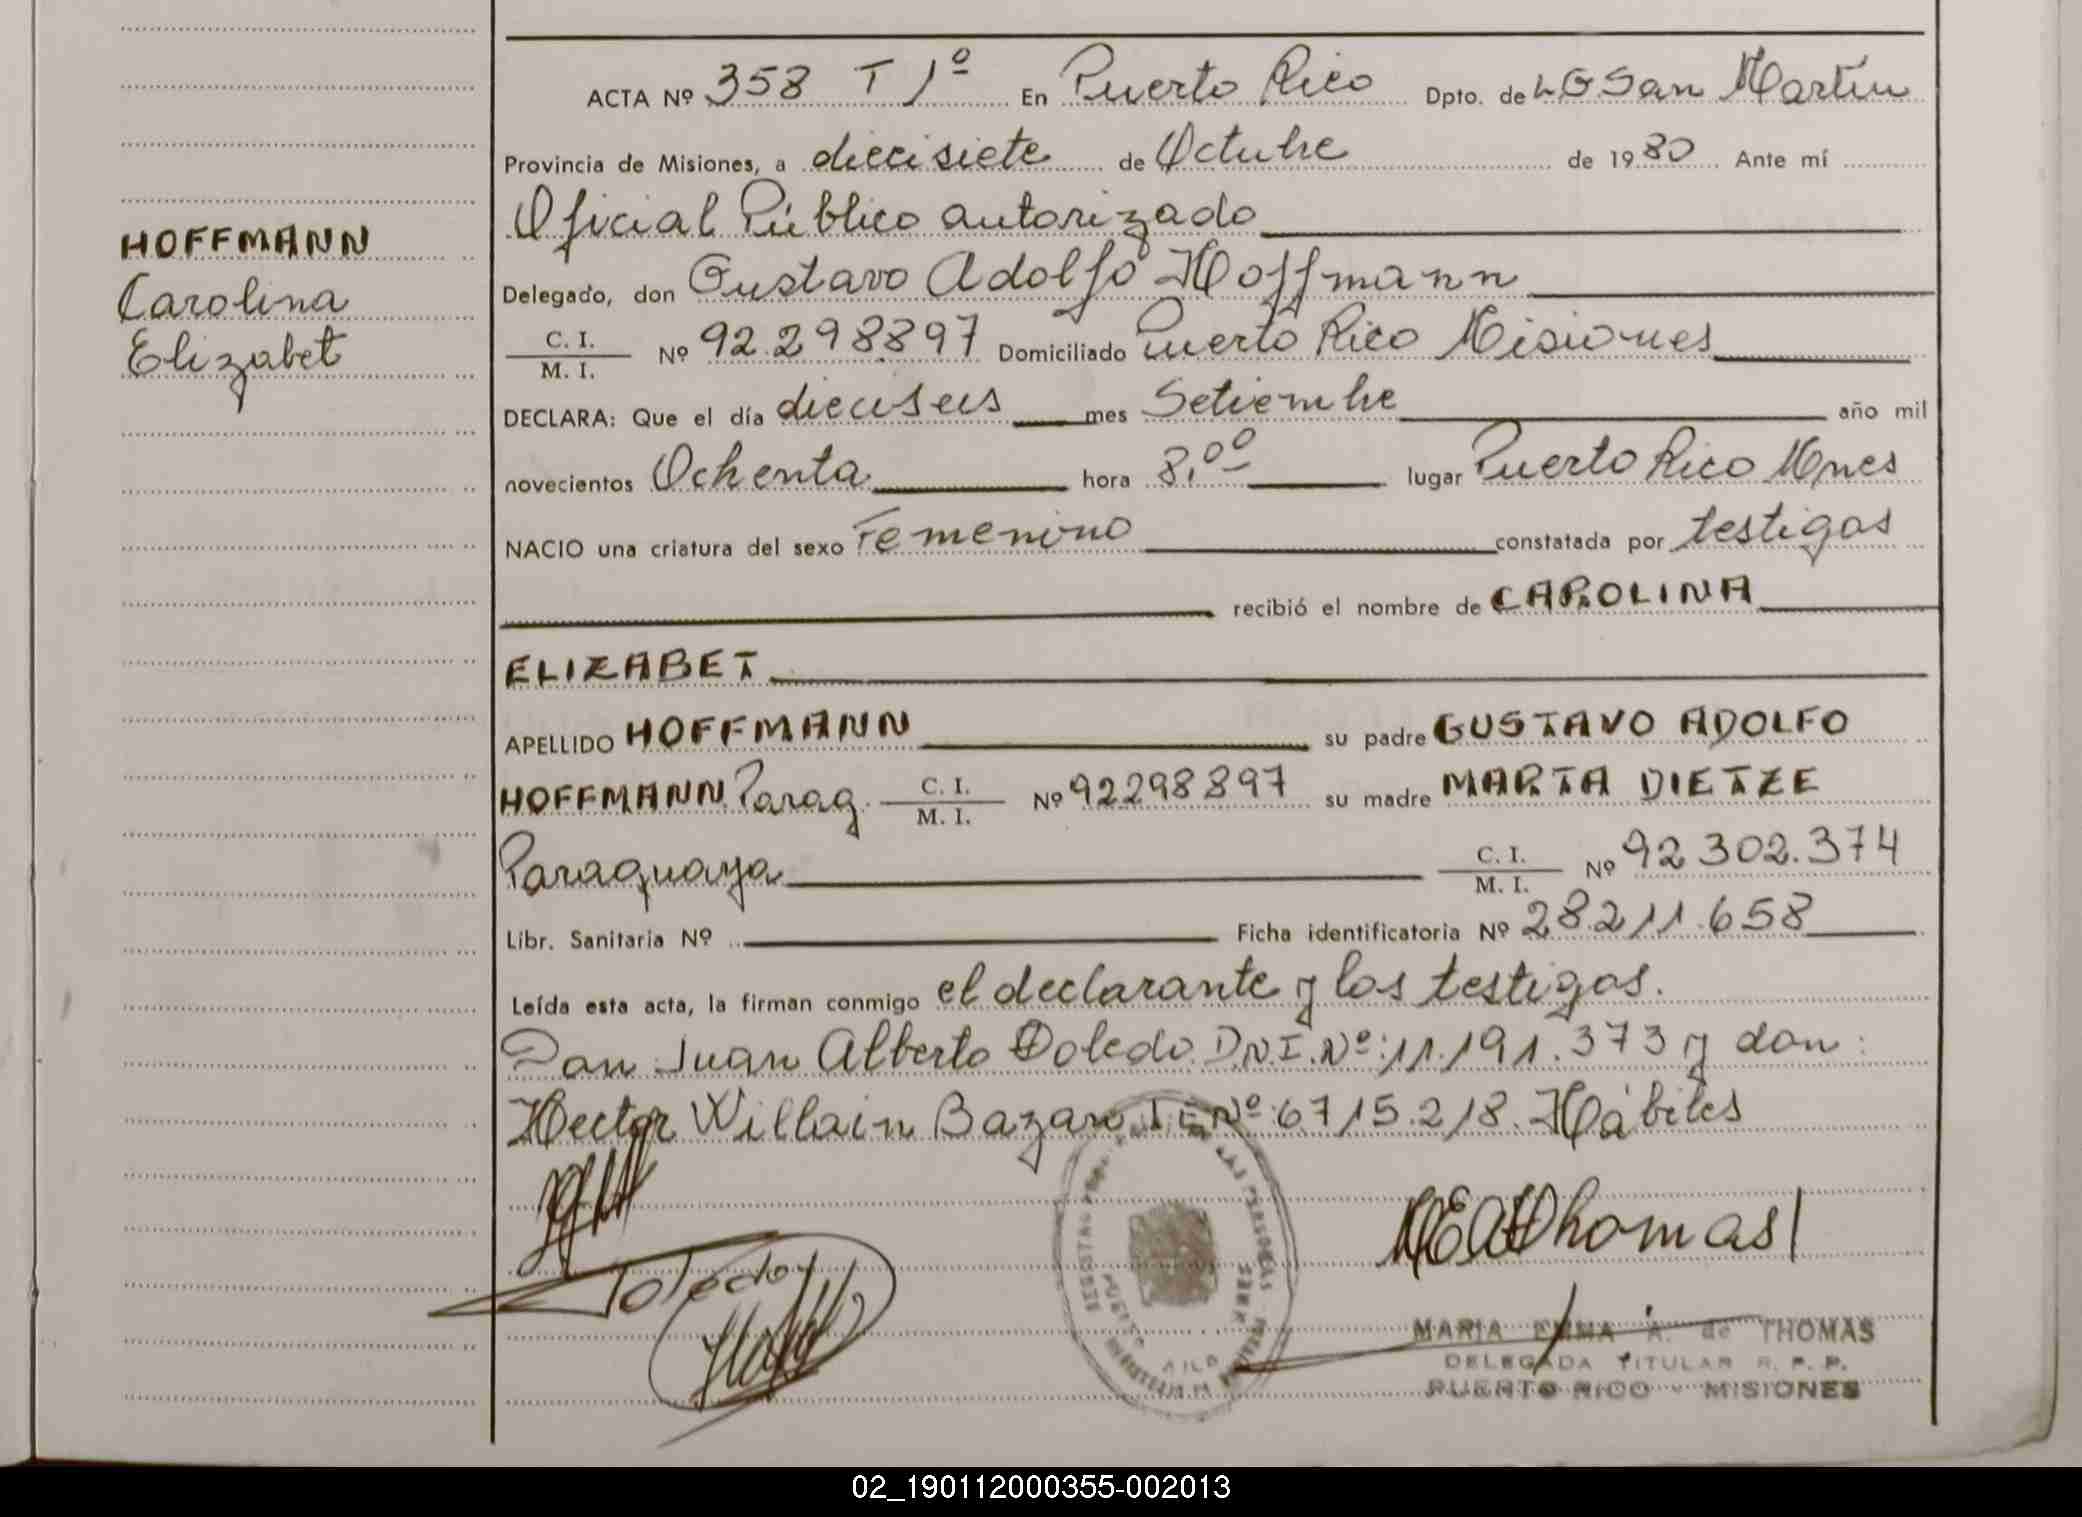 HOFFMANN
Carolina
Elizabet
ACTA Nº 358 T 1º En Puerto Rico Dpto. de LG San Martín
Provincia de Misiones, a diecisiete de Octubre de 1980 Ante mí
Oficial Público autorizado
Delegado, don Gustavo Adolfo Hoffmann
C. I.
M. I. Nº 92.298.897 Domiciliado Puerto Rico Misiones
DECLARA: Que el día dieciseis mes Setiembre año mil
novecientos Ochenta hora 8,00 lugar Puerto Rico Mnes
NACIO una criatura del sexo Femenino constatada por testigos
recibió el nombre de CAROLINA
ELIZABET
APELLIDO HOFFMANN su padre GUSTAVO ADOLFO
HOFFMANN Parag. C. I. M. I. Nº 92298897 su madre MARTA DIETZE
Paraguaya C. I. M. I. Nº 92 302.374
Libr. Sanitaria Nº Ficha identificatoria Nº 28.211.658
Leída esta acta, la firman conmigo el declarante y los testigos.
Don Juan Alberto Toledo D.N.I. Nº: 11.191.373 y don:
Hector Willain Bazaro LE Nº: 6715.218. Hábiles
Toledo
MARIA EMMA A. de THOMAS
DELEGADA TITULAR R. P. P.
PUERTO RICO - MISIONES
02_190112000355-002013